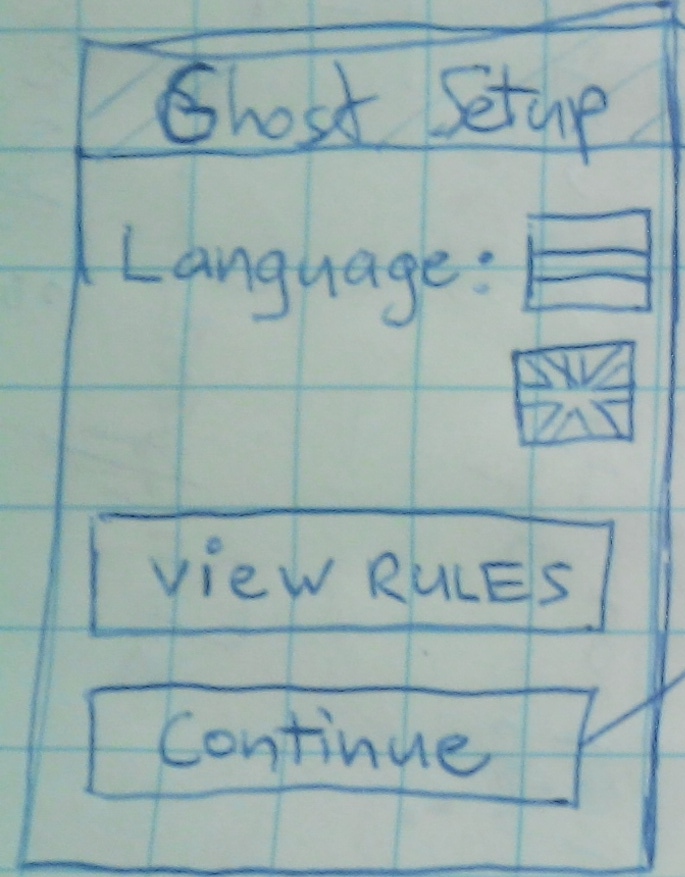 Ghost Setup
Language:
View RULES
Continue